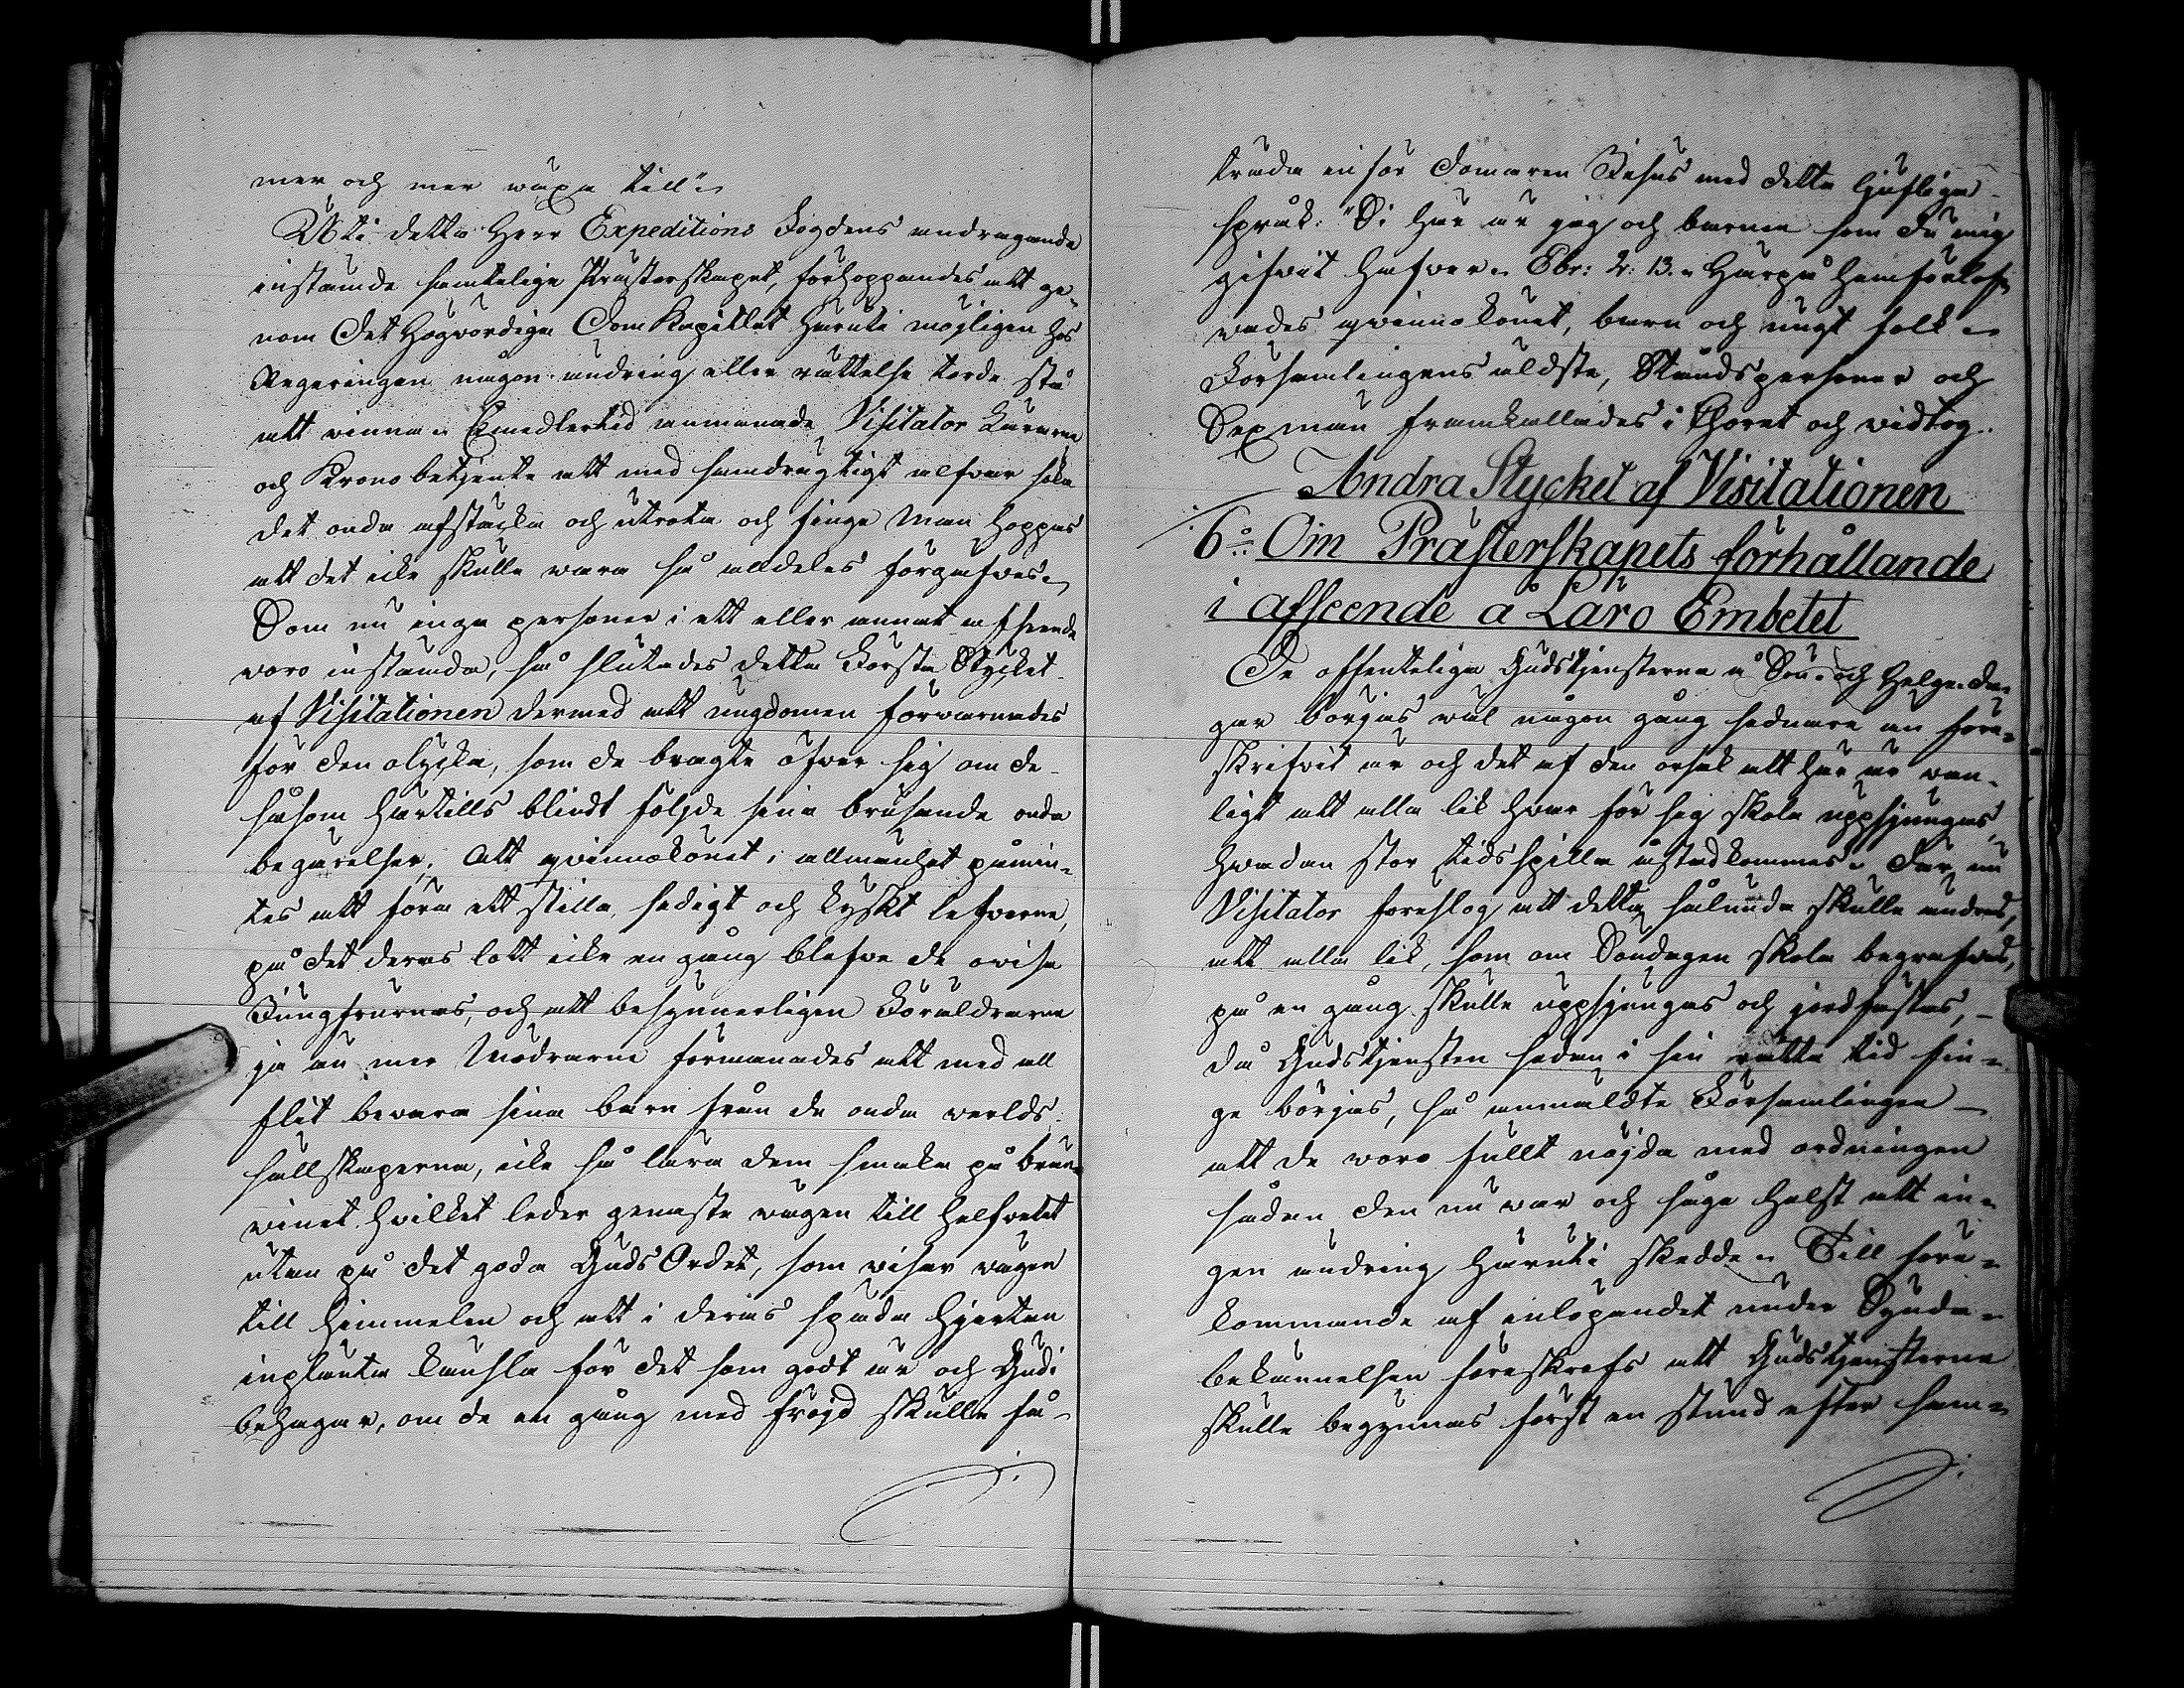 mer och mer wäxa till"
Uti detta Herr Expeditions Fogdens andragande
instämde samtelige Prästerskapet, förhoppandes att ge„
nom Det Högvördiga Dom Kapitlet häruti möjligen hos
Regeringen någon ändring eller rättelse torde stå
att winna. Emedlertid anmanade Visitator Lärarne
och Krono betjente att med samdrägtigt alfvar söka
det onda afstäcka och utrota och finge man hoppas
att det icke skulle wara så alldeles förgäfves.
Som nu inga personer i ett eller annat afseende
woro instämda, så slutades detta Första Stycket
af Visitationen dermed att ungdomen förvarnades
för den olycka, som de bragte öfver sig om de
såsom härtills blindt följde sina brusande onda
begärelser; Att qvinnokönet i allmänhet påmin„
tes att föra ett stilla, sedigt och kyskt lefverne,
på det deras lott icke en gång blefve de ovisa
Jungfrurnas, och att besynnerligen Föräldrarne
ja än mer Mödrarne förmanades att med all
flit bevara sina barn från de onda verlds-
sällskaperna, icke så lära dem smaka på brän„
winet hvilket leder genaste wägen till helfvetet
utan på det goda Guds Ordet, som visar wägen
till himmelen och att i deras späda hjertan
inplanta känsla för det som godt är och Gudi
behagar, om de en gång med fröjd skulle få
träda inför Domaren Jesus med detta ljufliga
språk: "Si här är jag och barnen som Du mig
gifvit hafver„ Ebr: 2: 13. „ Härpå hemförlof„
wades qvinnokönet, barn och ungt folk„
Församlingens äldste, Ståndspersoner och
Sexmän framkallades i Choret och vidtog.
Andra Stycket af Visitationen
6:o Om Prästerskapets förhållande
i afseende å Läro Embetet
De offentelige Gudstjensterna å Sön- och Helgeda„
gar börjas wäl någon gång sednare än före„
skrifvit är och det af den orsak att här är van„
ligt att alla lik hvar för sig skola uppsjungas,
hvadan stor tidsspilla åstadkommes. Der nu
Visitator föreslog att detta sålunda skulle ändras,
att alla lik, som om Söndagen skola begrafvas,
på en gång skulle uppsjungas och jordfästas, —
då Gudstjensten sedan i sin rätta tid fin„
ge börjas, så anmäldte Församlingen —
att de woro fullt nöjda med ordningen
sådan den nu var och såge helst att in„
gen ändring häruti skedde. Till före„
kommande af inlöpandet under Synda„
bekännelsen föreskrefs att Gudstjensterna
skulle begynnas först en stund efter sam„